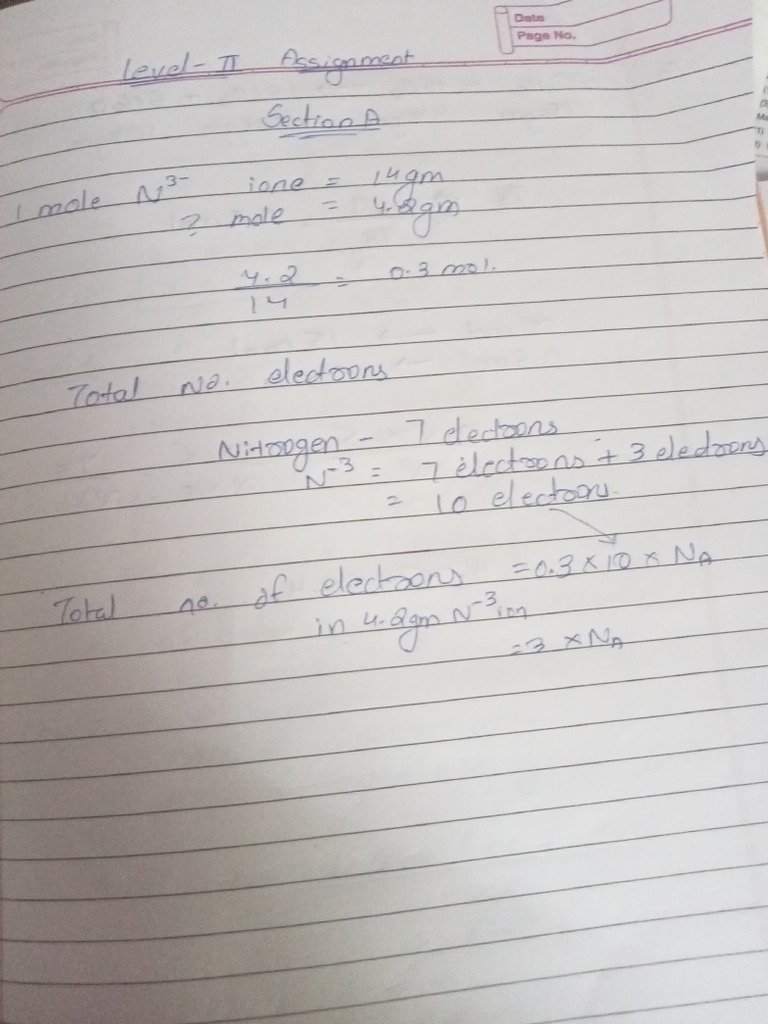 Date
Page No.
Level-II Assignment
Section A
1 mole N³⁻ ione = 14gm
? mole = 4.2gm
4.2
14 = 0.3 mol.
Total No. electrons
Nitrogen - 7 electrons
N⁻³ = 7 electrons + 3 electrons
= 10 electrons.
Total no. of electrons = 0.3 × 10 × NA
in 4.2gm N⁻³ ion
= 3 × NA